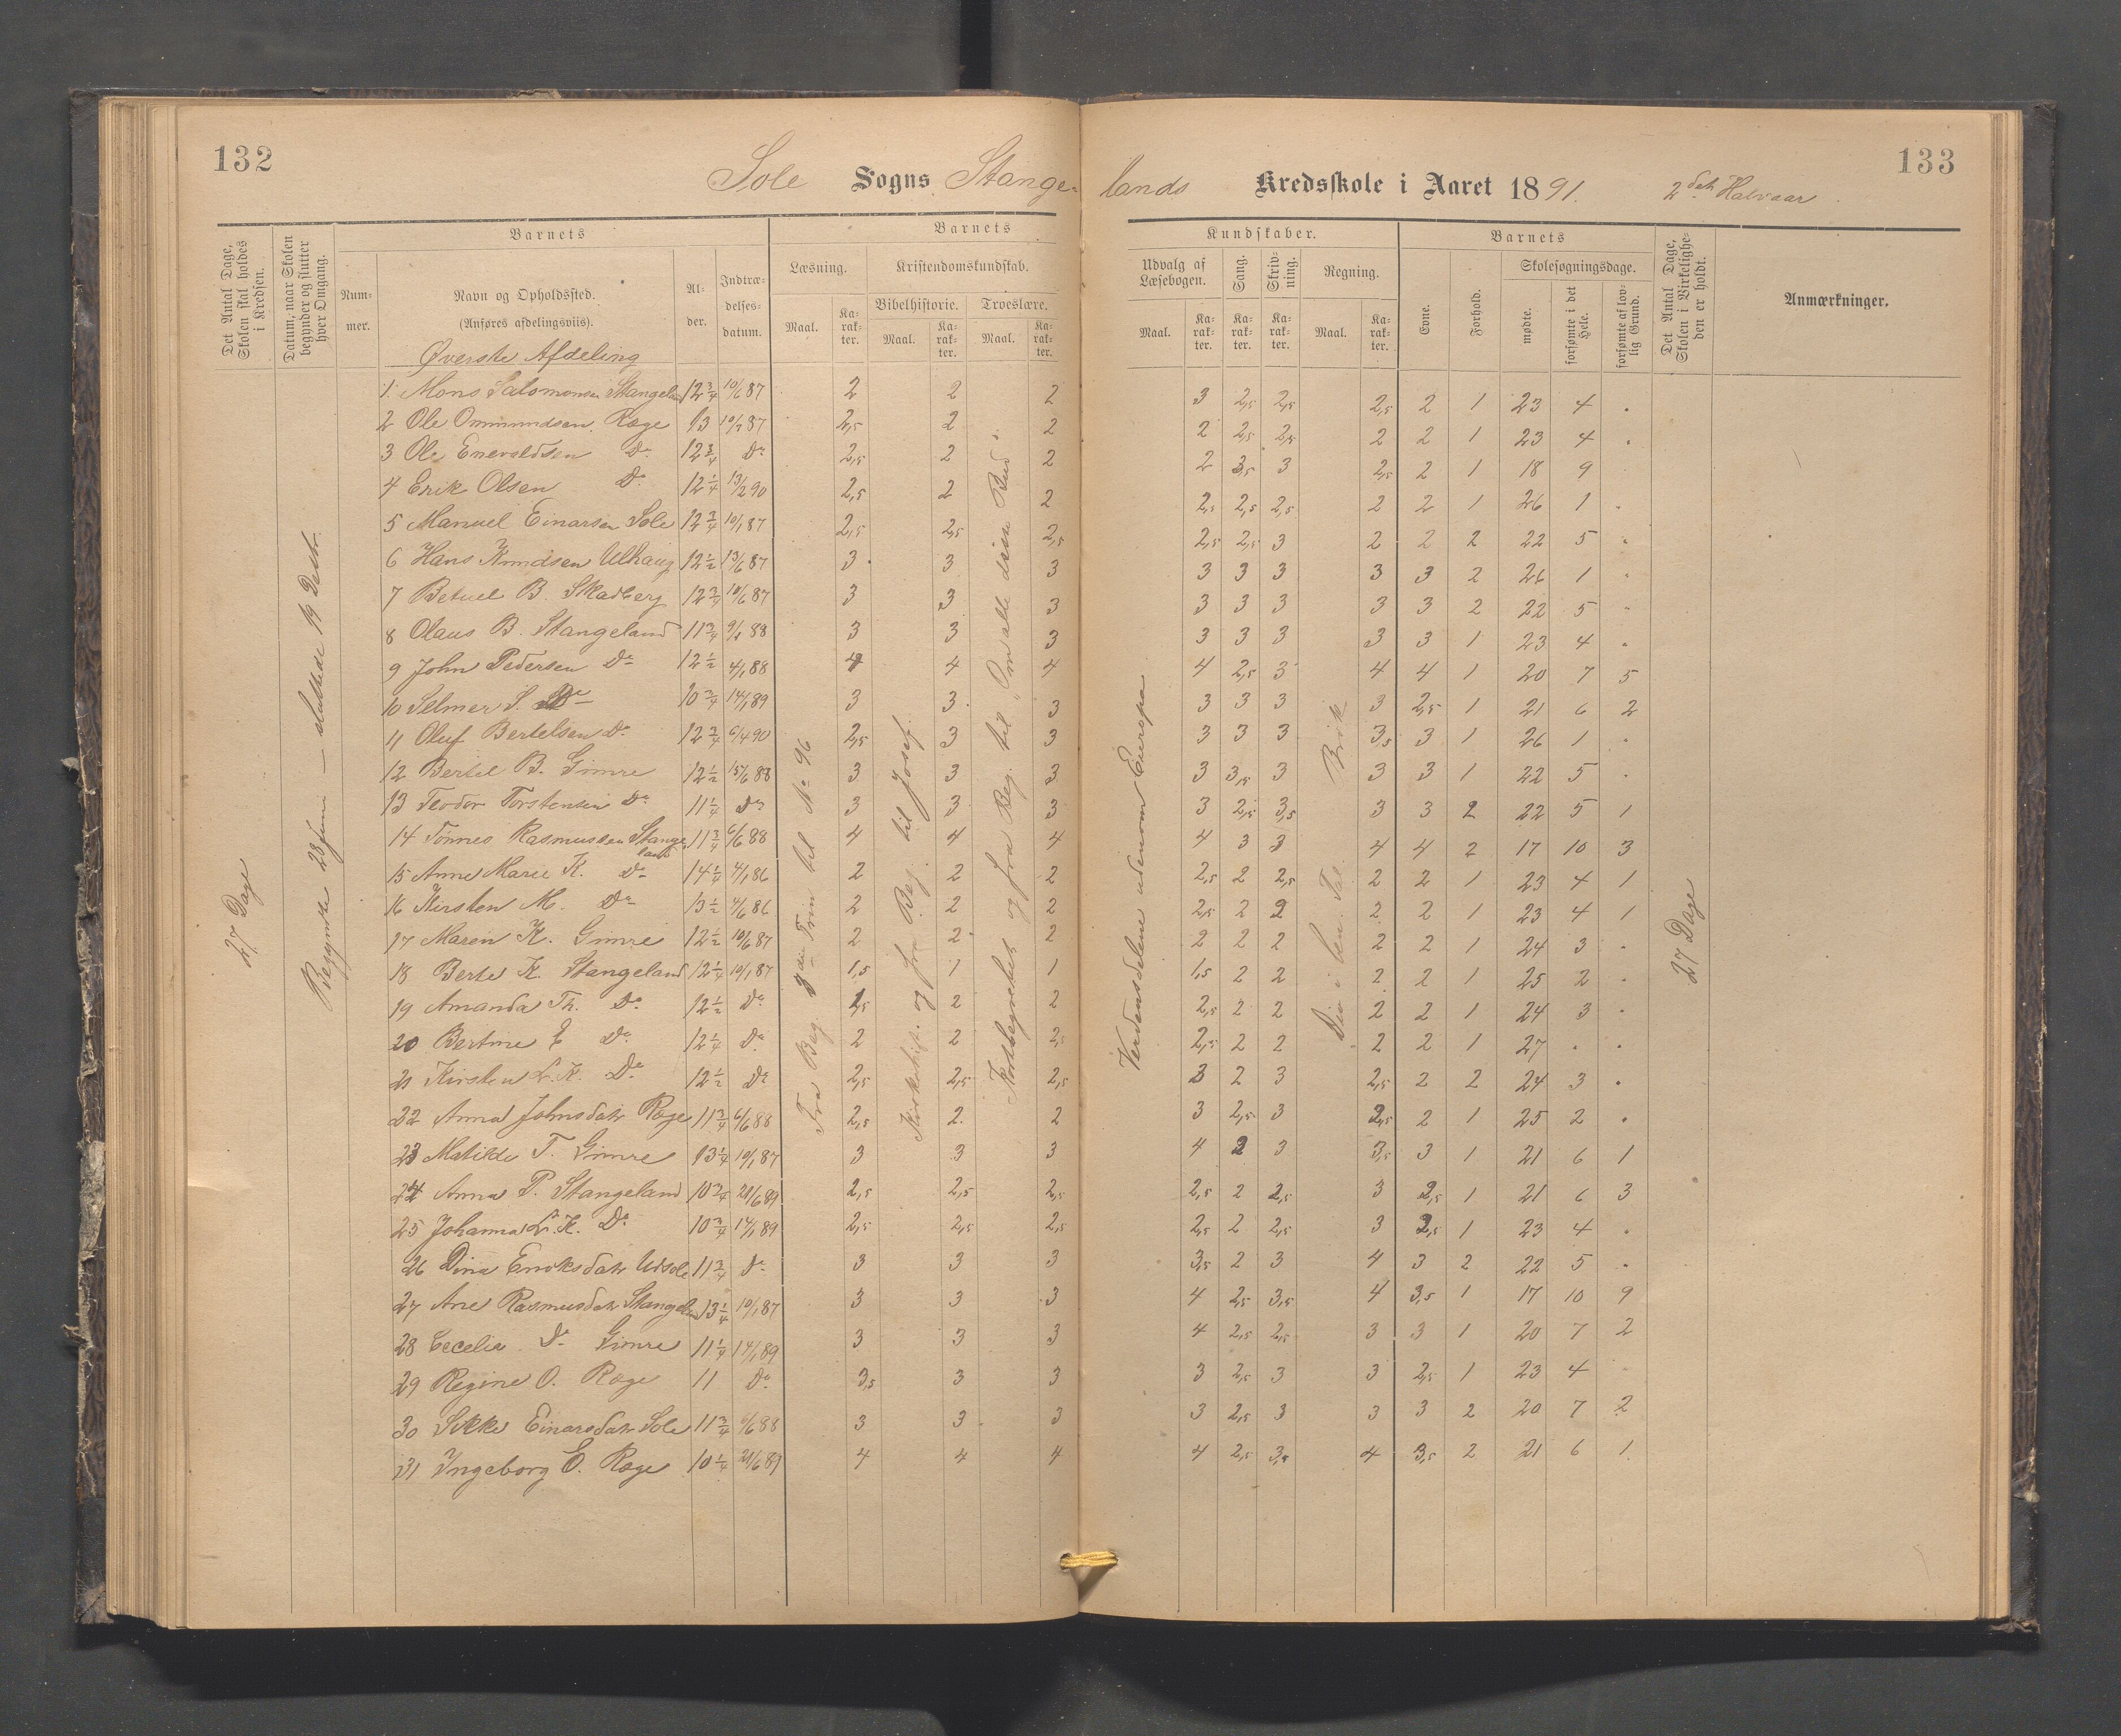 132
133
Sole Sogns Stange- lands Kredsskole i Aaret 1891. 2det Halvaar
Det Antal Dage, Skolen skal holdes i Kredsen.
Datum, naar Skolen begynder og slutter hver Omgang.
Barnets
Nummer.
Navn og Opholdssted.
(Anføres afdelingsviis).
Alder.
Indtrædelsesdatum.
Barnets
Læsning.
Kristendomskundskab.
Bibelhistorie. Troeslære.
Maal. Karakter. Maal. Karakter. Maal. Karakter.
Kundskaber.
Udvalg af Læsebogen. Sang. Skrivning. Regning.
Maal. Karakter. Karakter. Karakter. Maal. Karakter.
Barnets
Evne. Forhold.
Skolesøgningsdage.
mødte. forsømte i det Hele. forsømte af lovlig Grund.
Det Antal Dage, Skolen i Virkeligheden er holdt.
Anmærkninger.
Øverste Afdeling
27 Dage
Begyndte 28 Juni – sluttede 19 Decbr.
Fra Beg. 3die Trin til No 96
Kirkehist. og fra Beg. til Josef
og fra Beg. til "Om alle disse Bud"
Verdensdelene udenom Europa
Div. i ben. Tal Brök
27 Dage
1 Mons Salomonsen Stangeland 12 3/4 10/6 87 2 2 2 3 2,5 2,5 2,5 2 1 23 4 .
2 Ole Ommundsen Ræge 13 10/1 87 2,5 2 2 2 2,5 2,5 2 2 1 23 4 .
3 Ole Enevoldsen Do 12 3/4 Do 2,5 2 2 2 3,5 3 2,5 2 1 18 9
4 Erik Olsen Do 12 1/4 13/2 90 2,5 2 2 2,5 2,5 2,5 2 2 1 26 1 .
5 Manuel Einarsen Sole 12 3/4 10/1 87 2,5 2,5 2,5 2,5 2,5 3 2 2 2 22 5 .
6 Hans Knudsen Ulhaug 12 1/2 13/6 87 3 3 3 3 3 3 3 3 2 26 1 .
7 Betuel B. Skadberg 12 3/4 10/6 87 3 3 3 3 3 3 3 3 2 22 5 .
8 Olaus B. Stangeland 11 3/4 9/1 88 3 3 3 3 3 3 3 3 1 23 4 .
9 John Pedersen Do 12 1/2 4/1 88 4 4 4 4 2,5 3 4 4 1 20 7 5
10 Selmer S. Do 10 3/4 14/1 89 3 3 3 3 3 3 3 2,5 1 21 6 2
11 Oluf Bertelsen Do 12 3/4 6/4 90 2,5 3 3 3 3 3 3,5 3 1 26 1 .
12 Bertel B. Gimre 12 1/2 15/6 88 3 3 3 3 3,5 3 3 3 1 22 5 .
13 Teodor Torstensen Do 11 1/4 Do 3 3 3 3 2,5 3,5 3 3 2 22 5 1
14 Tönnes Rasmussen Stangeland 11 3/4 6/6 88 4 4 4 4 3 3 4 4 2 17 10 3
15 Anne Marie K. Do 14 1/4 4/1 86 2 2 2 2,5 2 2,5 2 2 1 23 4 1
16 Kirsten M. Do 13 1/2 4/6 86 2 2 2 2,5 2 2 2 2 1 23 4 1
17 Maren K. Gimre 12 1/2 10/6 87 2 2 2 2 2 2 2 2 1 24 3 .
18 Berte K. Stangeland 12 1/4 10/1 87 1,5 1 1 1,5 2 2 2 2 1 25 2 .
19 Amanda Th. Do 12 1/2 Do 2,5 2 2 2,5 2 2 2 2 1 24 3 .
20 Bertine E Do 12 1/4 Do 2 2 2,5 2,5 2 2 2 2 1 27 . .
21 Kirsten L. K. Do 12 1/2 Do 2,5 2,5 2,5 3 2 3 2,5 2 2 24 3 .
22 Anna Johnsdatr Ræge 11 3/4 6/6 88 2,5 2 2 3 2,5 3 2,5 2 1 25 2 .
23 Matilde T. Gimre 13 1/4 10/1 87 3 3 3 4 2 3 3,5 3 1 21 6 1
24 Anna P. Stangeland 10 3/4 21/6 89 2,5 2,5 2,5 2,5 2 2,5 3 2,5 1 21 6 3
25 Johanna L. K. Do 10 3/4 14/1 89 2,5 2,5 2,5 2,5 2 2,5 3 2,5 1 23 4 .
26 Dina Enoksdatr Utsole 11 3/4 Do 3 3 3 3,5 2 3 4 3 2 22 5 .
27 Ane Rasmusdatr Stangeland 13 1/4 10/1 87 3 3 3 4 2,5 3,5 4 3,5 1 17 10 9
28 Cecelia Do Gimre 11 1/4 14/1 89 3 3 3 4 2,5 2,5 3 3 1 20 7 2
29 Regine O. Ræge 11 Do 3,5 3 3 3 2,5 3 3 2,5 1 23 4
30 Sikke Einarsdatr Sole 11 3/4 6/6 88 3 3 3 3 2,5 3 3 3 2 20 7 2
31 Ingeborg E. Ræge 10 1/4 21/6 89 4 4 4 4 2,5 3,5 4 3,5 2 21 6 1